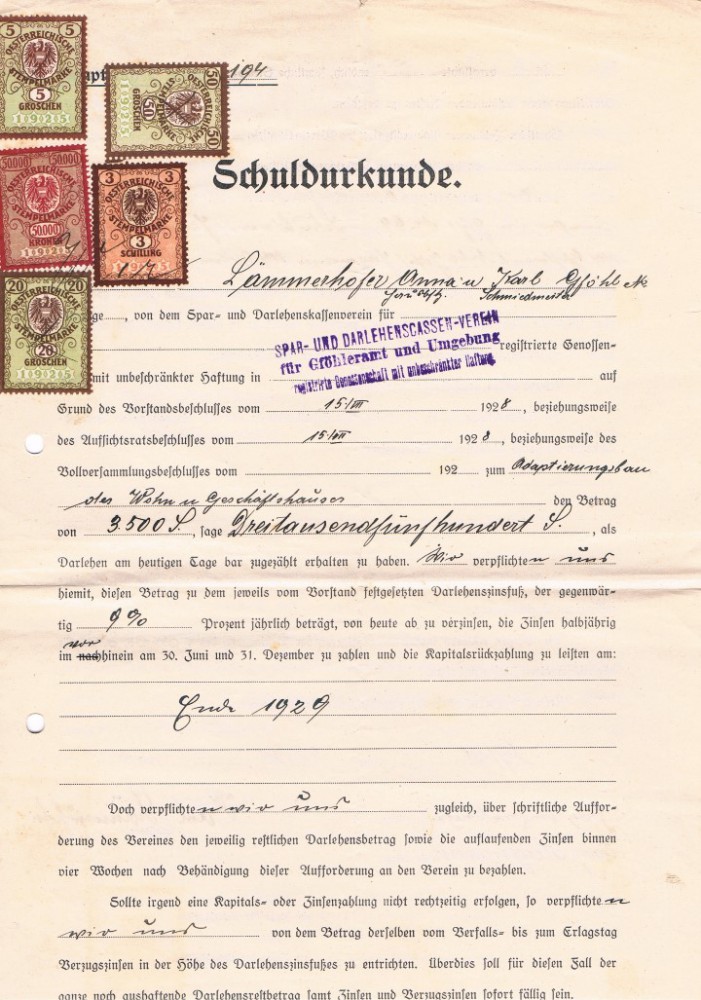 5 5
OESTERREICHISCHE
STEMPELMARKE
5
GROSCHEN
1925
50 50
OESTERREICHISCHE
STEMPELMARKE
GROSCHEN
1925
194
50000 50000
OESTERREICHISCHE
STEMPELMARKE
50000
KRONEN
1925
3 3
OESTERREICHISCHE
STEMPELMARKE
3
SCHILLING
1925
20 20
OESTERREICHISCHE
STEMPELMARKE
20
GROSCHEN
1925
Schuldurkunde.
Lämmerhofer Anna u Karl Gföhl
Schmiedmeister
, von dem Spar- und Darlehenskassenverein für
SPAR- UND DARLEHENSCASSEN-VEREIN
für Gföhleramt und Umgebung
registrierte Genossenschaft mit unbeschränkter Haftung.
registrierte Genossen-
mit unbeschränkter Haftung in auf
Grund des Vorstandsbeschlusses vom 15./VII 1928, beziehungsweise
des Aufsichtsratsbeschlusses vom 15./VII 1928, beziehungsweise des
Vollversammlungsbeschlusses vom 192 zum Adaptierungsbau
des Wohn u Geschäftshauses den Betrag
von 3.500 S., sage Dreitausendfünfhundert S., als
Darlehen am heutigen Tage bar zugezählt erhalten zu haben. Wir verpflichten uns
hiemit, diesen Betrag zu dem jeweils vom Vorstand festgesetzten Darlehenszinsfuß, der gegenwär-
tig 9% Prozent jährlich beträgt, von heute ab zu verzinsen, die Zinsen halbjährig
vor
im nachhinein am 30. Juni und 31. Dezember zu zahlen und die Kapitalsrückzahlung zu leisten am:
Ende 1929
Doch verpflichten wir uns zugleich, über schriftliche Auffor-
derung des Vereines den jeweilig restlichen Darlehensbetrag sowie die auflaufenden Zinsen binnen
vier Wochen nach Behändigung dieser Aufforderung an den Verein zu bezahlen.
Sollte irgend eine Kapitals- oder Zinsenzahlung nicht rechtzeitig erfolgen, so verpflichten
wir uns von dem Betrag derselben vom Verfalls- bis zum Erlagstag
Verzugszinsen in der Höhe des Darlehenszinsfußes zu entrichten. Überdies soll für diesen Fall der
ganze noch aushaftende Darlehensrestbetrag samt Zinsen und Verzugszinsen sofort fällig sein.